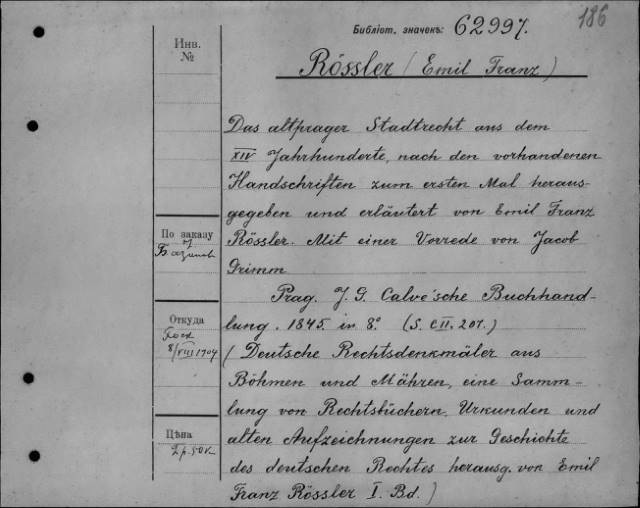 186
Библіот. значекъ: 62997.
Инв.
№
Rössler (Emil Franz)
Das altprager Stadtrecht aus dem
XIV Jahrhunderte, nach den vorhandenen
Handschriften zum ersten Mal heraus-
gegeben und erläutert von Emil Franz
Rössler. Mit einer Vorrede von Jacob
Grimm
Prag. J. G. Calve'sche Buchhand-
lung. 1845. in 8° (S. CII. 207.)
(Deutsche Rechtsdenkmäler aus
Böhmen und Mähren, eine Samm-
lung von Rechtsbüchern, Urkunden und
alten Aufzeichnungen zur Geschichte
des deutschen Rechtes herausg. von Emil
Franz Rössler I. Bd.)
По заказу
Откуда
8/VIII 1904
Цѣна
2 р. 50 к